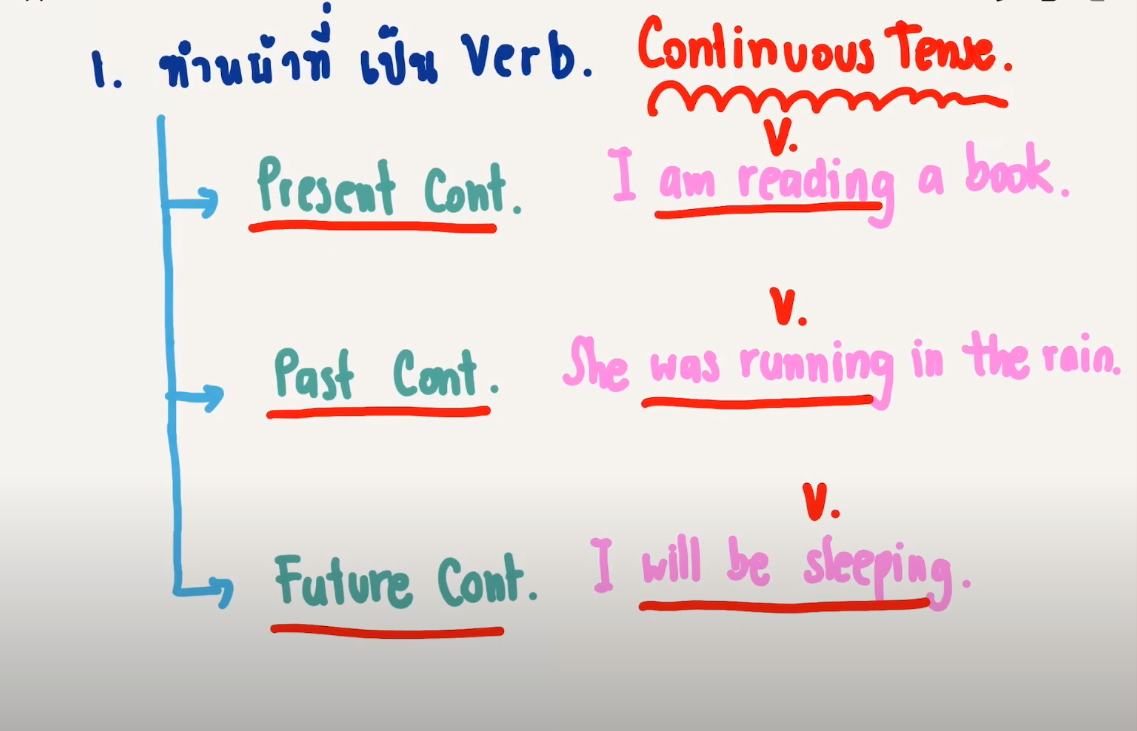 1. ทำหน้าที่ เป็น Verb. Continuous Tense.
V.
Present Cont. I am reading a book.
V.
Past Cont. She was running in the rain.
V.
Future Cont. I will be sleeping.